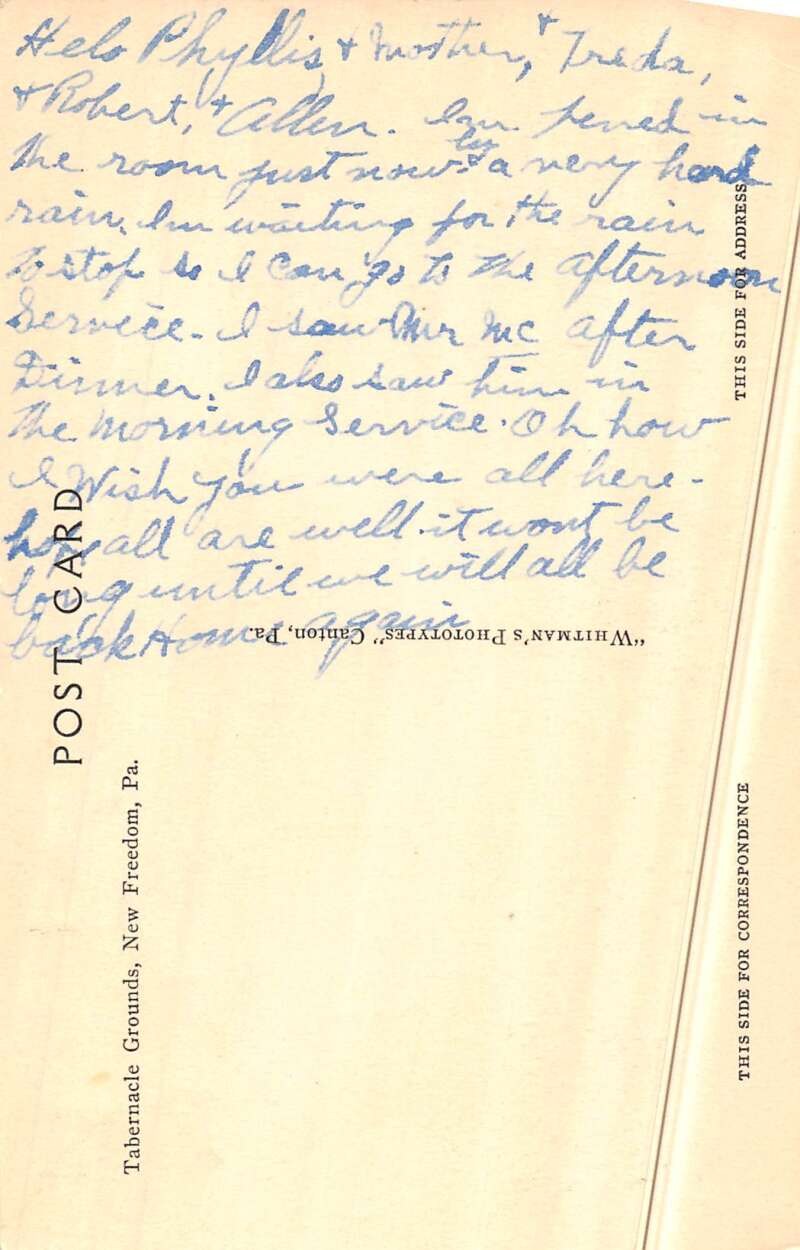 Helo Phyllis & Mother, & Treda,
& Robert, & Allen. Im. pened in
the room just now by a very hard
rain. Im waiting for the rain
to stop so I can go to the afternoon
Service. I saw Mr Mc after
Dinner. I also saw him in
the Morning Service. Oh how
I Wish you were all here-
hope all are well. it wont be
long until we will all be
back Home again
POST CARD
Tabernacle Grounds, New Freedom, Pa.
"WHITMAN'S PHOTOTYPES" Canton, Pa.
THIS SIDE FOR ADDRESS
THIS SIDE FOR CORRESPONDENCE